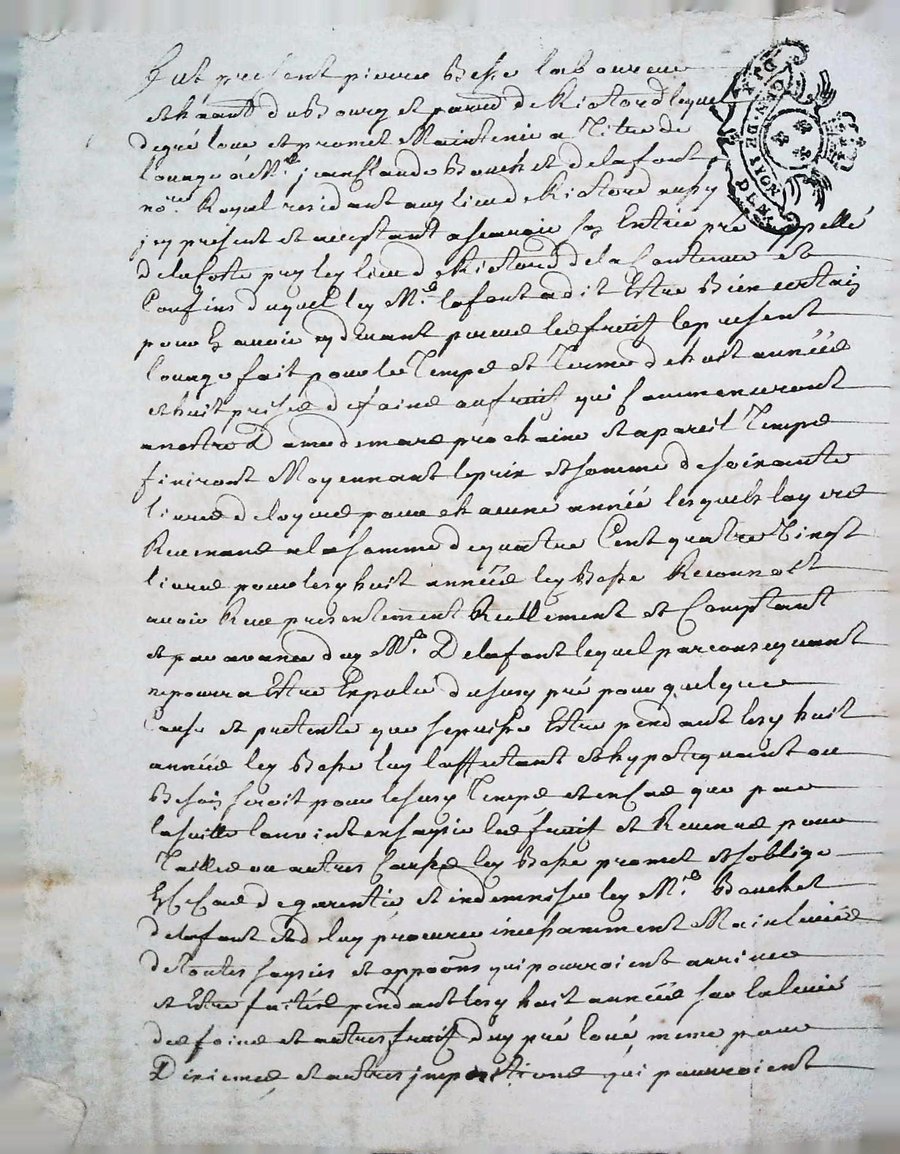 fut present pierre Besse laboureur
et habitant du Bourg et paroisse de Riotord lequel
de gré loue et promet Maintenir a Titre de
louage à Mr. jean Claude Bouchet delafont
nore. Royal residant au lieu de Riotord aussy
jcy présent et acceptant ascavoir son Entier pré appellé
delacoste sus led lieu de Riotord de la Contenue et
Confins duquel led Mr. lafont a dit Estre Bien certain
pour En avoir cy devant perceu les fruits le present
louage fait pour le Temps et Terme de huit années
et huit prises de foins ou fruits qui Commenceront
a nostre Dame de mars prochaine et a pareil Temps
finiront Moyennant le prix et somme de soixante
livres de loyers pour chacune année lesquels loyers
Revenans a la somme de quatre Cent quatre Vingt
livres pour lesd huit années led Besse Reconnoît
avoir Reçeu presentement Reellement et Comptant
et par avance dud Mr. Delafont lequel par consequant
ne pourra Estre Expulsé du susd pré pour quelque
Cause et pretexte que se puisse Estre pendant lesd huit
années led Besse luy laffectant et hypotequant au
Besoin seroit pour le susd Temps et en Cas que par
la suitte lon vint en saysir les fruits et Revenus pour
Tailles ou autres Causes led Besse promet et soblige
Esd Cas de garentir et indemniser led Mr. Bouchet
delafont et de luy procurer incessamment Mainlevée
de toutes saysies et oppõns qui pourroient arriver
et Estre faittes pendant lesd huit années sur la levée
des foins et autres fruits dud pré loué, meme pour
Dixiemes et autres jmpositions qui pourroient
GEN. DE RIOM